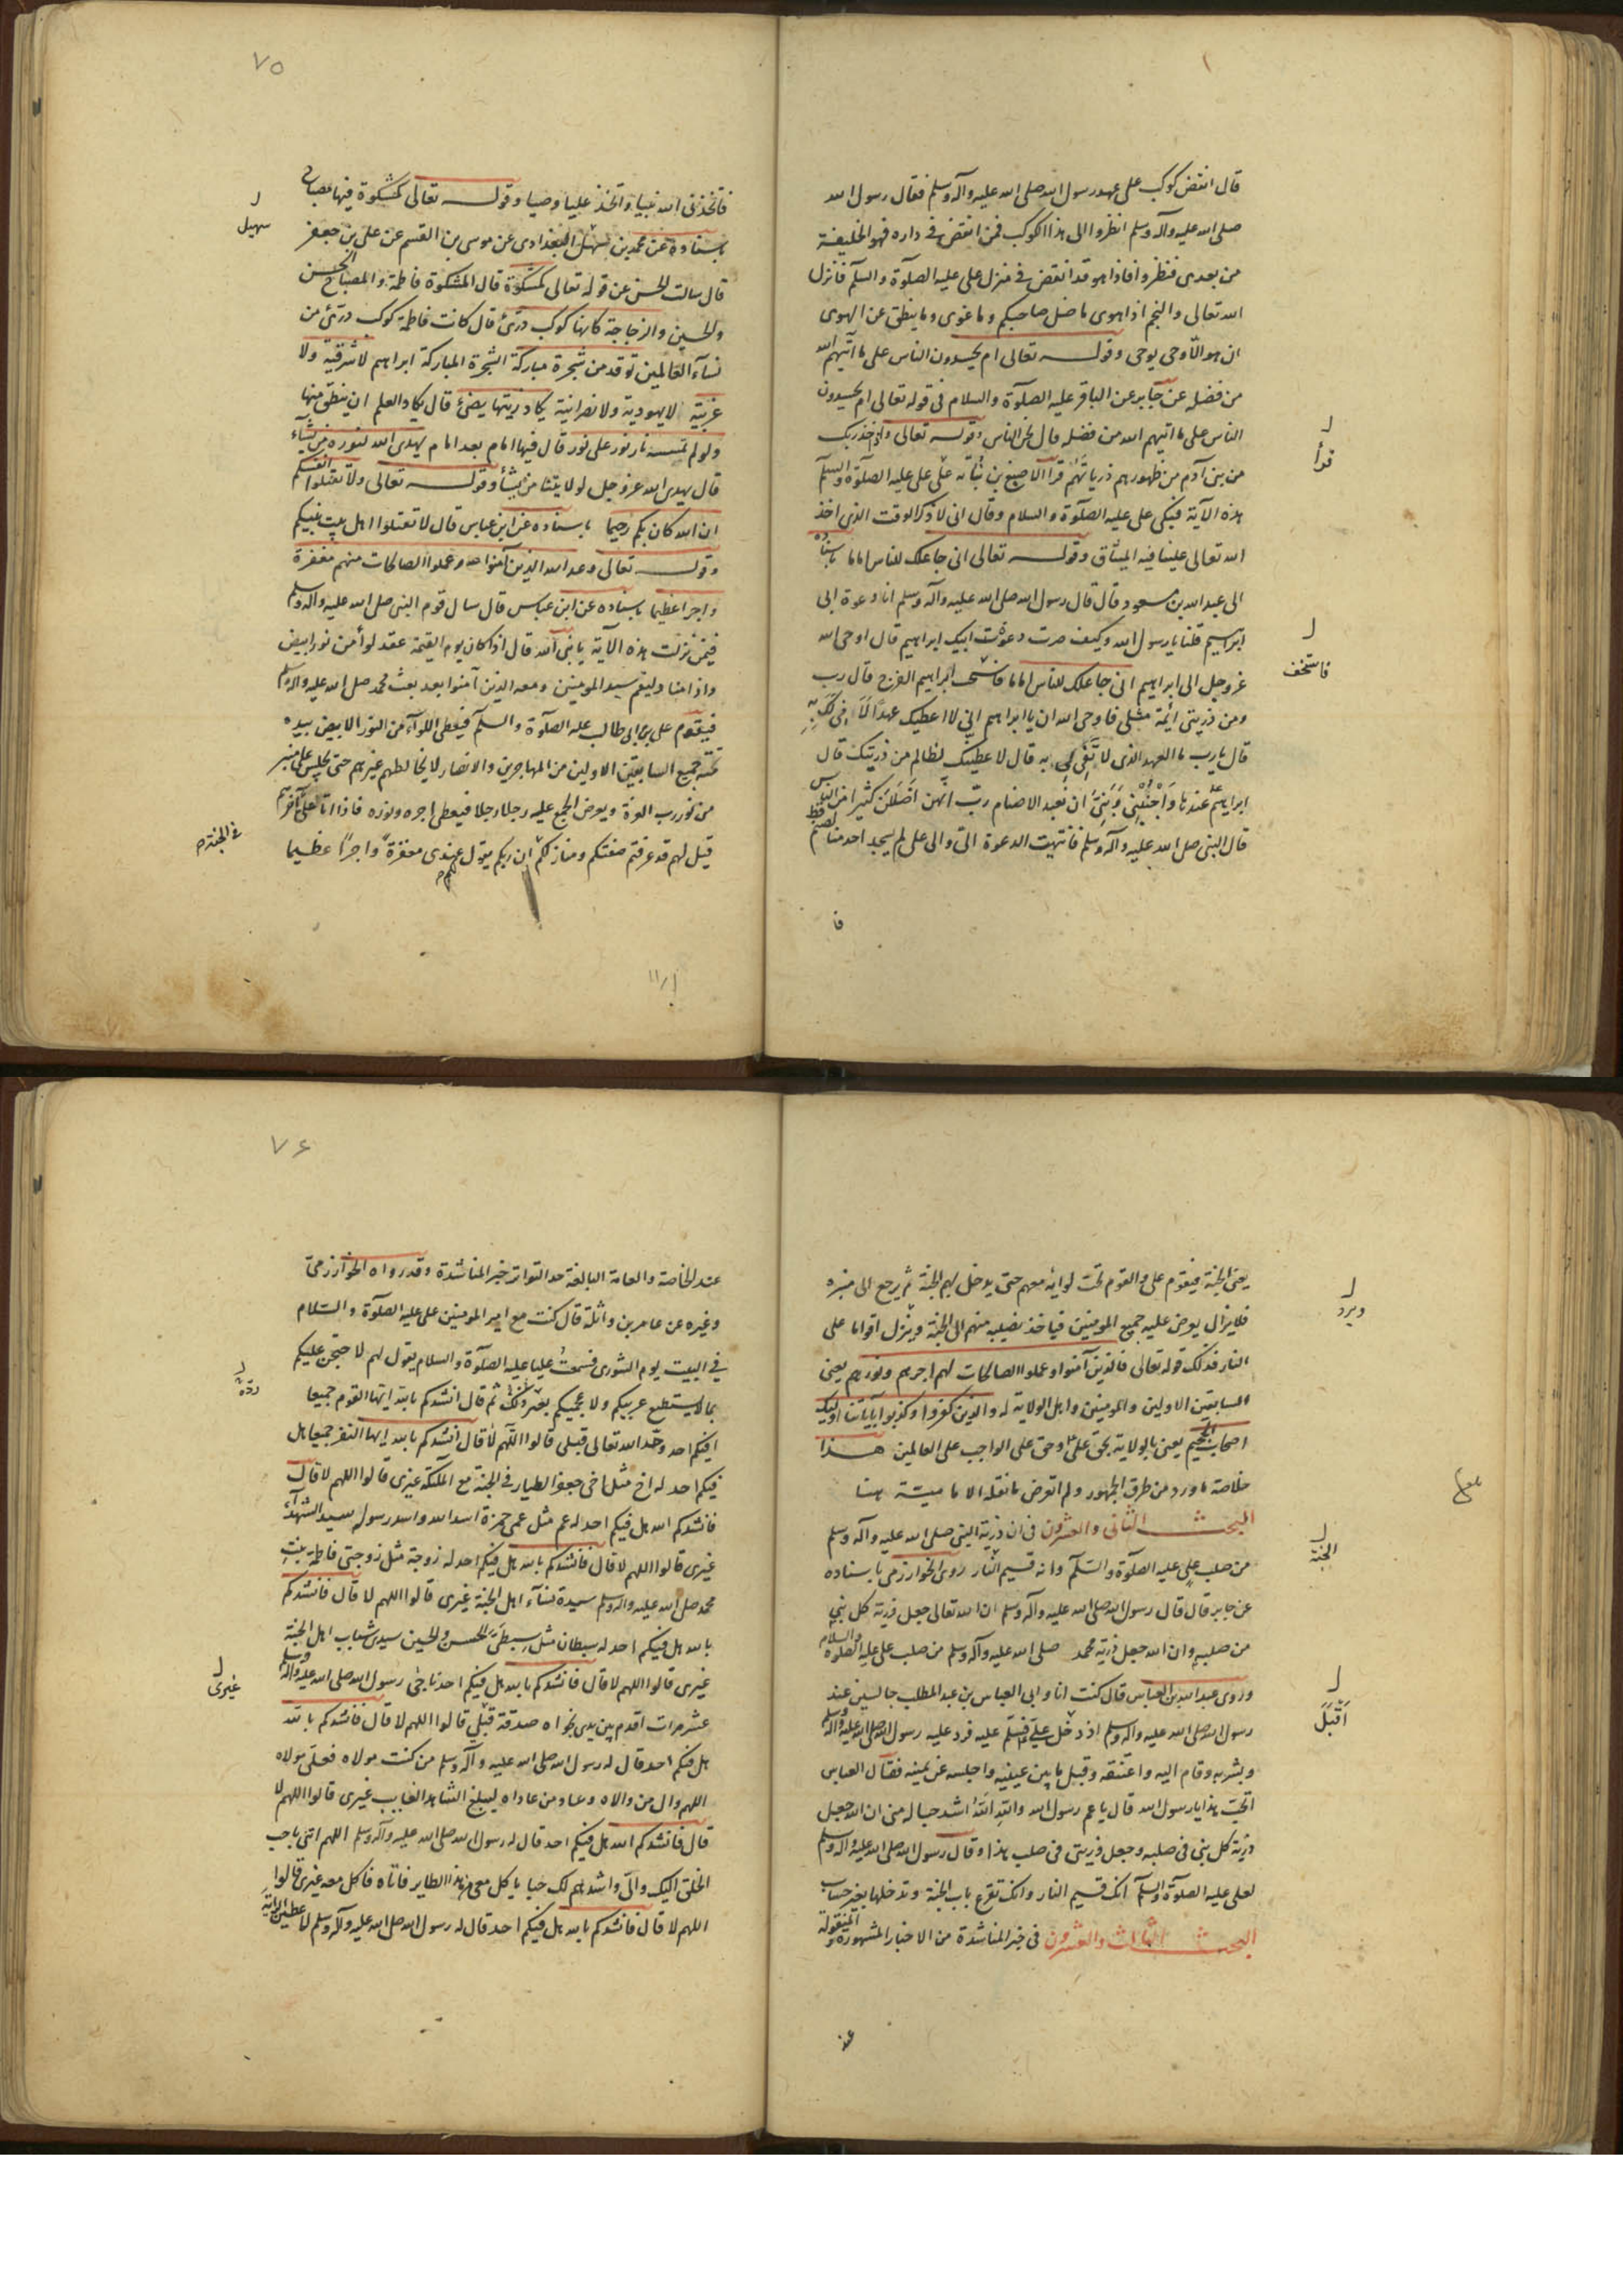 قال انقض كوكب على عهد رسول الله صلى الله عليه وآله وسلم فقال رسول الله
صلى الله عليه وآله وسلم انظروا الى هذا الكوكب فمن انقض فى داره فهو الخليفة
من بعدى فنظروا فاذا هو قد انقض فى منزل على عليه الصلوة والسلم فانزل
الله تعالى والنجم اذا هوى ما ضل صاحبكم وما غوى وما ينطق عن الهوى
ان هو الا وحى يوحى وقوله تعالى ام يحسدون الناس على ما اتيهم الله
من فضله عن جابر عن الباقر عليه الصلوة والسلام فى قوله تعالى ام يحسدون
الناس على ما اتيهم الله من فضله قال نحن الناس وقوله تعالى واذ اخذ ربك
قرأ
من بنى آدم من ظهورهم ذرياتهم قرا الاصبغ بن نباته على على عليه الصلوة والسلم
هذه الآية فبكى على عليه الصلوة والسلام وقال انى لاذكر الوقت الذى اخذ
الله تعالى علينا فيه الميثاق وقوله تعالى انى جاعلك للناس اماما باسناده
الى عبد الله بن مسعود قال قال رسول الله صلى الله عليه وآله وسلم انا دعوة ابى
ابرهيم قلنا يا رسول الله وكيف صرت دعوة ابيك ابراهيم قال اوحى الله
فاستخف
عز وجل الى ابراهيم انى جاعلك للناس اماما فاستخف ابراهيم الفرح قال رب
ومن ذريتى ائمة مثلى فاوحى الله ان يا ابراهيم انى لا اعطيك عهدا لا افى لك به
قال يا رب ما العهد الذى لا تفى لى به قال لا اعطيك لظالم من ذريتك قال
ابراهيم عندها واجنبنى وبنى ان نعبد الاصنام رب انهن اضللن كثيرا من الناس
قال النبى صلى الله عليه وآله وسلم فانتهيت الدعوة الى والى على لم يسجد احد منا لصنم قط
فا
٧٥
فاتخذنى الله نبيا واتخذ عليا وصيا وقوله تعالى كمشكوة فيها مصباح
سهيل
باسناده عن محمد بن سهل البغدادى عن موسى بن القسم عن على بن جعفر
قال سالت الحسن عن قوله تعالى كمشكوة قال المشكوة فاطمة والمصباح الحسن
والحسين والزجاجة كانها كوكب درى قال كانت فاطمة كوكب درى من
نساء العالمين توقد من شجرة مباركة الشجرة المباركة ابراهيم لا شرقية ولا
غربية لا يهودية ولا نصرانية يكاد زيتها يضئ قال يكاد العلم ان ينطق منها
ولو لم تمسسه نار نور على نور قال فيها امام بعد امام يهدى الله لنوره من يشاء
قال يهدى الله عز وجل لولايتنا من يشأ وقوله تعالى ولا تقتلوا انفسكم
ان الله كان بكم رحيما باسناده عن ابن عباس قال لا تقتلوا اهل بيت نبيكم
وقوله تعالى وعد الله الذين آمنوا وعملوا الصالحات منهم مغفرة
واجرا عظيما باسناده عن ابن عباس قال سال قوم النبى صلى الله عليه وآله وسلم
فيمن نزلت هذه الآية يا نبى الله قال اذا كان يوم القيمة عقد لواء من نور ابيض
واذا مناد ليقم سيد المومنين ومعه الذين آمنوا بعد بعث محمد صلى الله عليه وآله وسلم
فيقوم على بن ابى طالب عليه الصلوة والسلم فيعطى اللواء من النور الابيض بيده
تحته جميع السابقين الاولين من المهاجرين والانصار لا يخالطهم غيرهم حتى يجلس على منبر
من نور رب العزة ويعرض الجميع عليه رجلا رجلا فيعطى اجره ونوره فاذا اتى على آخرهم
قيل لهم قد عرفتم صفتكم ومنازلكم فى الجنة ان ربكم يقول عندى لكم مغفرة واجرا عظيما
يعنى الجنة فيقوم على والقوم تحت لوائه معهم حتى يدخل بهم الجنة ثم يرجع الى منبره
فلا يزال يعرض عليه جميع المومنين فياخذ نصيبه منهم الى الجنة وينزل اقواما على
النار فذلك قوله تعالى فالذين آمنوا وعملوا الصالحات لهم اجرهم ونورهم يعنى
السابقين الاولين والمومنين واهل الولاية له والذين كفروا وكذبوا بآياتنا اوليك
اصحاب الجحيم يعنى بالولاية بحق على وحق على الواجب على العالمين هذا
خلاصة ما ورد من طرق الجمهور ولم اتعرض ما نقله الامامية هنا
البحث الثانى والعشرون فى ان ذرية النبى صلى الله عليه وآله وسلم
الجنة
من صلب على عليه الصلوة والسلم وانه قسيم النار روى الخوارزمى باسناده
عن جابر قال قال رسول الله صلى الله عليه وآله وسلم ان الله تعالى جعل ذرية كل نبى
من صلبه وان الله جعل ذرية محمد صلى الله عليه وآله وسلم من صلب على عليه الصلوة والسلام
وروى عبد الله بن العباس قال كنت انا وابى العباس بن عبد المطلب جالسين عند
اقبل
رسول الله صلى الله عليه وآله وسلم اذ دخل على فسلم عليه فرد عليه رسول الله صلى الله عليه وآله وسلم
وبشر به وقام اليه واعتنقه وقبل ما بين عينيه واجلسه عن يمينه فقال العباس
اتحب هذا يا رسول الله قال يا عم رسول الله والله لله اشد حبا له منى ان الله جعل
ذرية كل نبى فى صلبه وجعل ذريتى فى صلب هذا وقال رسول الله صلى الله عليه وآله وسلم
لعلى عليه الصلوة والسلم انك قسيم النار وانك تقرع باب الجنة وتدخلها بغير حساب
البحث الثالث والعشرون فى خبر المناشدة من الاخبار المشهورة المنقولة
عند
٧٦
عند الخاصة والعامة البالغة حد التواتر خبر المناشدة وقد رواه الخوارزمى
وغيره عن عامر بن واثلة قال كنت مع امير المومنين على عليه الصلوة والسلام
فى البيت يوم الشورى فسمعت عليا عليه الصلوة والسلام يقول لهم لا حتجن عليكم
بما لا يستطيع عربيكم ولا عجميكم بغير ذلك ثم قال انشدكم بالله ايها القوم جميعا
افيكم احد وحد الله تعالى قبلى قالوا اللهم لا قال انشدكم بالله ايها النفر جميعا هل
فيكم احد له اخ مثل اخى جعفر الطيار فى الجنة مع الملئكة غيرى قالوا اللهم لا قال
فانشدكم الله هل فيكم احد له عم مثل عمى حمزة اسد الله واسد رسوله سيد الشهداء
غيرى قالوا اللهم لا قال فانشدكم بالله هل فيكم احد له زوجة مثل زوجتى فاطمة بنت
محمد صلى الله عليه وآله وسلم سيدة نساء اهل الجنة غيرى قالوا اللهم لا قال فانشدكم
بالله هل فيكم احد له سبطان مثل سبطى الحسن والحسين سيدى شباب اهل الجنة
غيرى
غيرى قالوا اللهم لا قال فانشدكم بالله هل فيكم احد ناجى رسول الله صلى الله عليه وآله وسلم
عشر مرات اقدم بين يدى نجواه صدقة قبلى قالوا اللهم لا قال فانشدكم بالله
هل فيكم احد قال له رسول الله صلى الله عليه وآله وسلم من كنت مولاه فعلى مولاه
اللهم وال من والاه وعاد من عاداه ليبلغ الشاهد الغايب غيرى قالوا اللهم لا
قال فانشدكم الله هل فيكم احد قال له رسول الله صلى الله عليه وآله وسلم اللهم ائتنى باحب
الخلق اليك والى واشدهم لك حبا ياكل معى من هذا الطاير فاتاه فاكل معه غيرى قالوا
اللهم لا قال فانشدكم بالله هل فيكم احد قال له رسول الله صلى الله عليه وآله وسلم لاعطين الراية